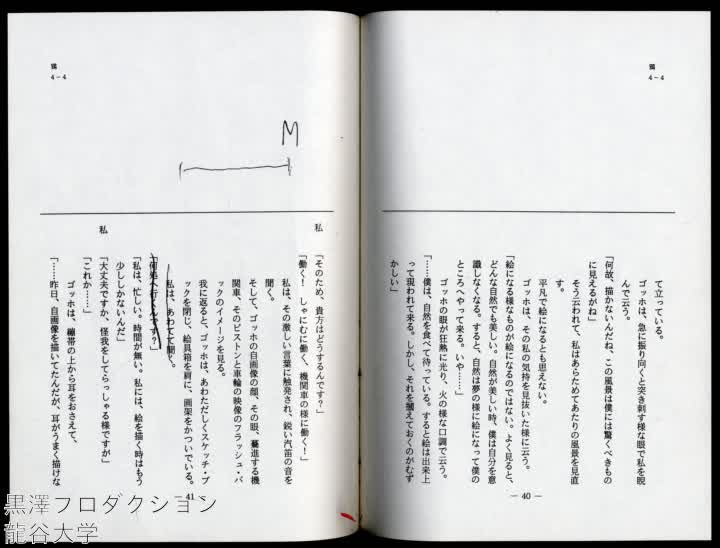 鴉
4－4
て立っている。
ゴッホは、急に振り向くと突き刺す様な眼で私を睨
んで云う。
「何故、描かないんだね、この風景は僕には驚くべきもの
に見えるがね」
そう云われて、私はあらためてあたりの風景を見直
す。
平凡で絵になるとも思えない。
ゴッホは、その私の気持を見抜いた様に云う。
「絵になる様なものが絵になるのではない。よく見ると、
どんな自然でも美しい。自然が美しい時、僕は自分を意
識しなくなる。すると、自然は夢の様に絵になって僕の
ところへやって来る。いや……」
ゴッホの眼が狂熱に光り、火の様な口調で云う。
「……僕は、自然を食べて待っている。すると絵は出来上
って現われて来る。しかし、それを摑えておくのがむず
かしい」
― 40 ―
鴉
4－4
M
私
「そのため、貴方はどうするんです？」
「働く！　しゃにむに働く、機関車の様に働く！」
私は、その激しい言葉に触発され、鋭い汽笛の音を
聞く。
そして、ゴッホの自画像の顔、その眼、驀進する機
関車、そのピストンと車輪の映像のフラッシュ・バ
ックのイメージを見る。
我に返ると、ゴッホは、あわただしくスケッチ・ブ
ックを閉じ、絵具箱を肩に、画架をかついでいる。
私は、あわてて聞く。
「何処へ行くんです？」
「私は、忙しい。時間が無い。私には、絵を描く時はもう
少ししかないんだ」
私
「大丈夫ですか、怪我をしてらっしゃる様ですが」
「これか……」
ゴッホは、繃帯の上から耳をおさえて、
「……昨日、自画像を描いてたんだが、耳がうまく描けな
― 41 ―
黒澤プロダクション
龍谷大学